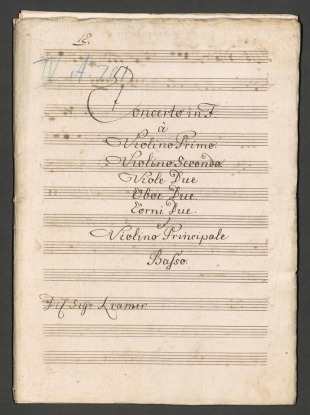 12.
IV A 287
Concerto in F
à
Violino Primo.
Violino Secondo.
Viole Due
Oboe Due.
Corni Due.
e
Violino Principale
Basso.
Del Sigr Kramer.